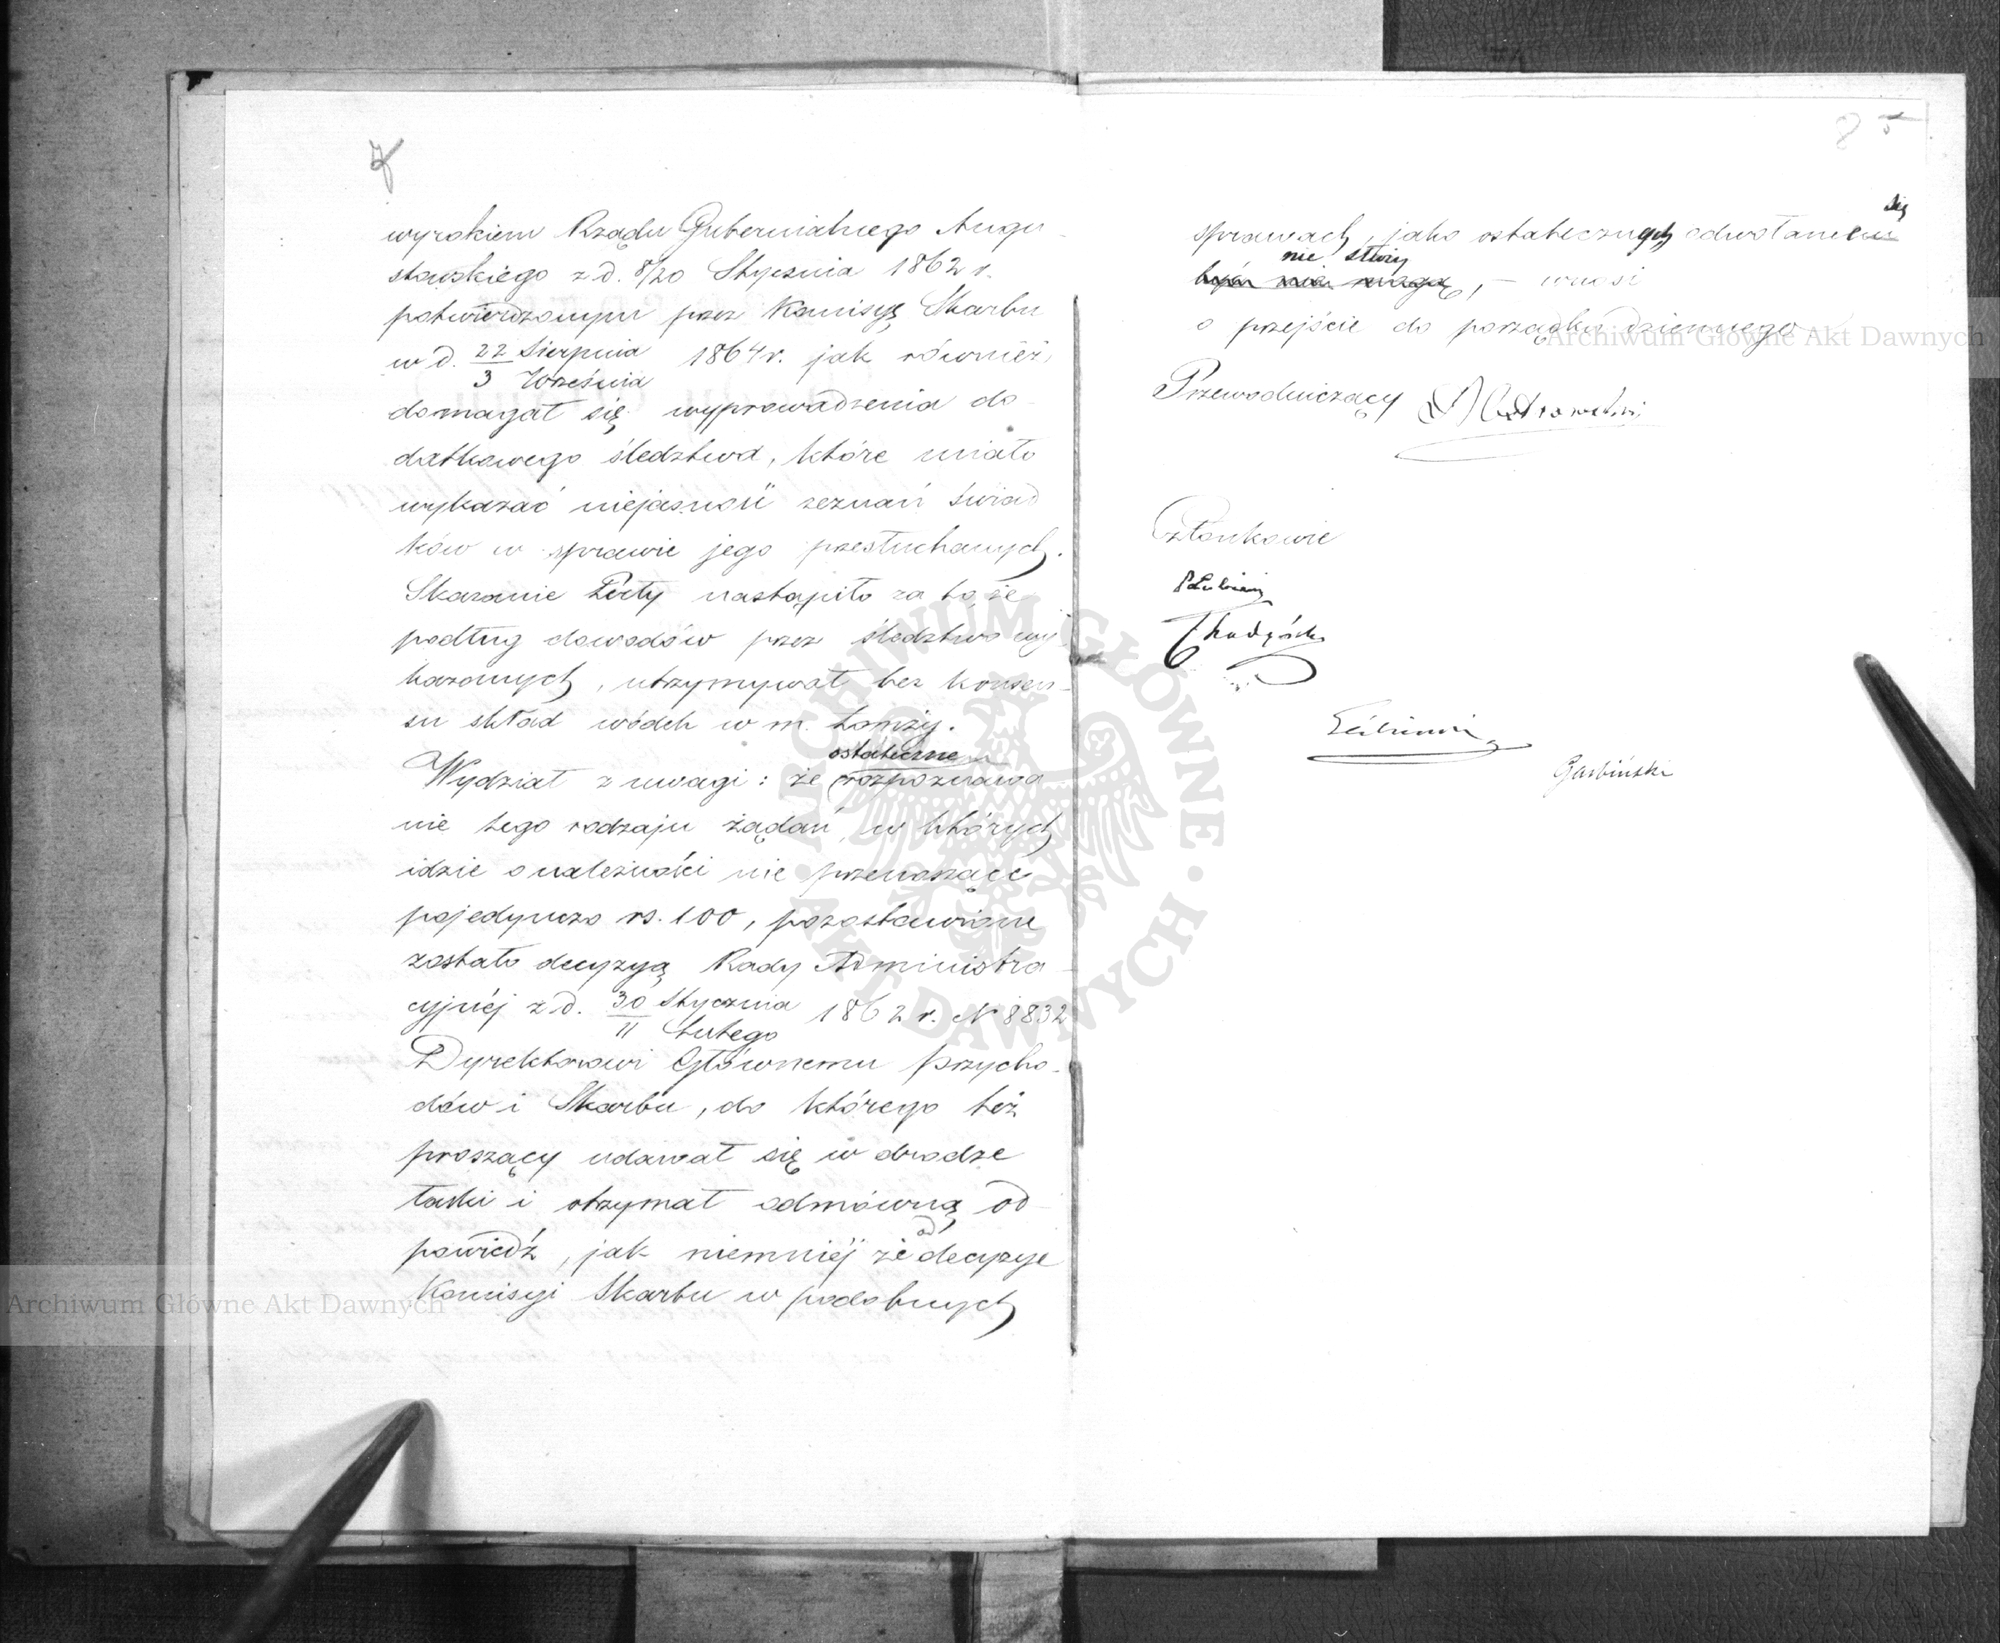 7
wyrokiem Rządu Gubernialnego Augu-
stowskiego z d. 8/20 Stycznia 1862 r.
potwierdzonym przez Komisyę Skarbu
w d. 22 Sierpnia / 3 Września 1864 r. jak również,
domagał się wyprowadzenia do-
datkowego śledztwa, które miało
wykazać niejasność zeznań świad
ków w sprawie jego przesłuchanych.
Skazanie nastąpiło za to, że
podług dowodów przez śledztwo wy-
kazanych, utrzymywał bez konsen-
su skład wódek w m. Łomży.
ostateczne
Wydział z uwagi: że rozpoznawa
nie tego rodzaju żądań, w których
idzie o należności nie przenoszące
pojedynczo rs. 100, pozostawione
zostało decyzyą Rady Administra-
cyjnéj z d. 30 Stycznia / 11 Lutego 1862 r. N 8832
Dyrektorowi Głównemu Przycho-
dów i Skarbu, do którego też
proszący udawał się w drodze
łaski i otrzymał odmówną od-
powiedź, jak niemniéj że od decyzye
Komisyi Skarbu w podobnych
8 5
sprawach, jako ostatecznych odwołanie się
nie służy
być nie mogą, – wnosi
o przejście do porządku dziennego
Przewodniczący
Członkowie
Garbiński
ARCHIWUM GŁÓWNE AKT DAWNYCH
Archiwum Główne Akt Dawnych
Archiwum Główne Akt Dawnych